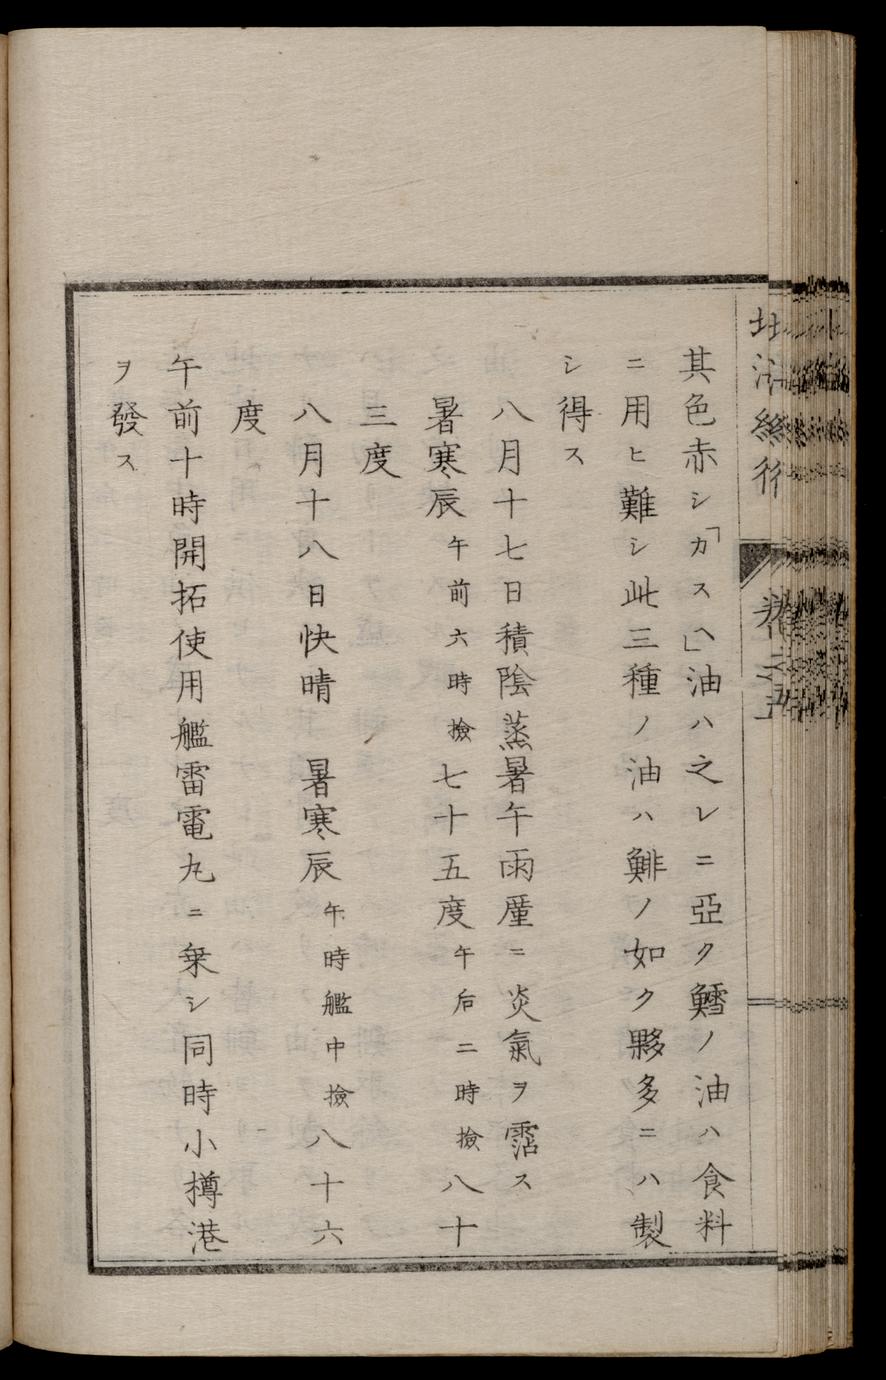 其色赤シ「カスヘ」油ハ之レニ亞ク鱈ノ油ハ食料
ニ用ヒ難シ此三種ノ油ハ鯡ノ如ク夥多ニハ製
シ得ス
八月十七日積陰蒸暑午雨廑ニ炎氣ヲ霑ス
暑寒辰午前六時撿七十五度午后二時撿八十
三度
八月十八日快晴　暑寒辰午時艦中撿八十六
度
午前十時開拓使用艦雷電丸ニ乗シ同時小樽港
ヲ發ス